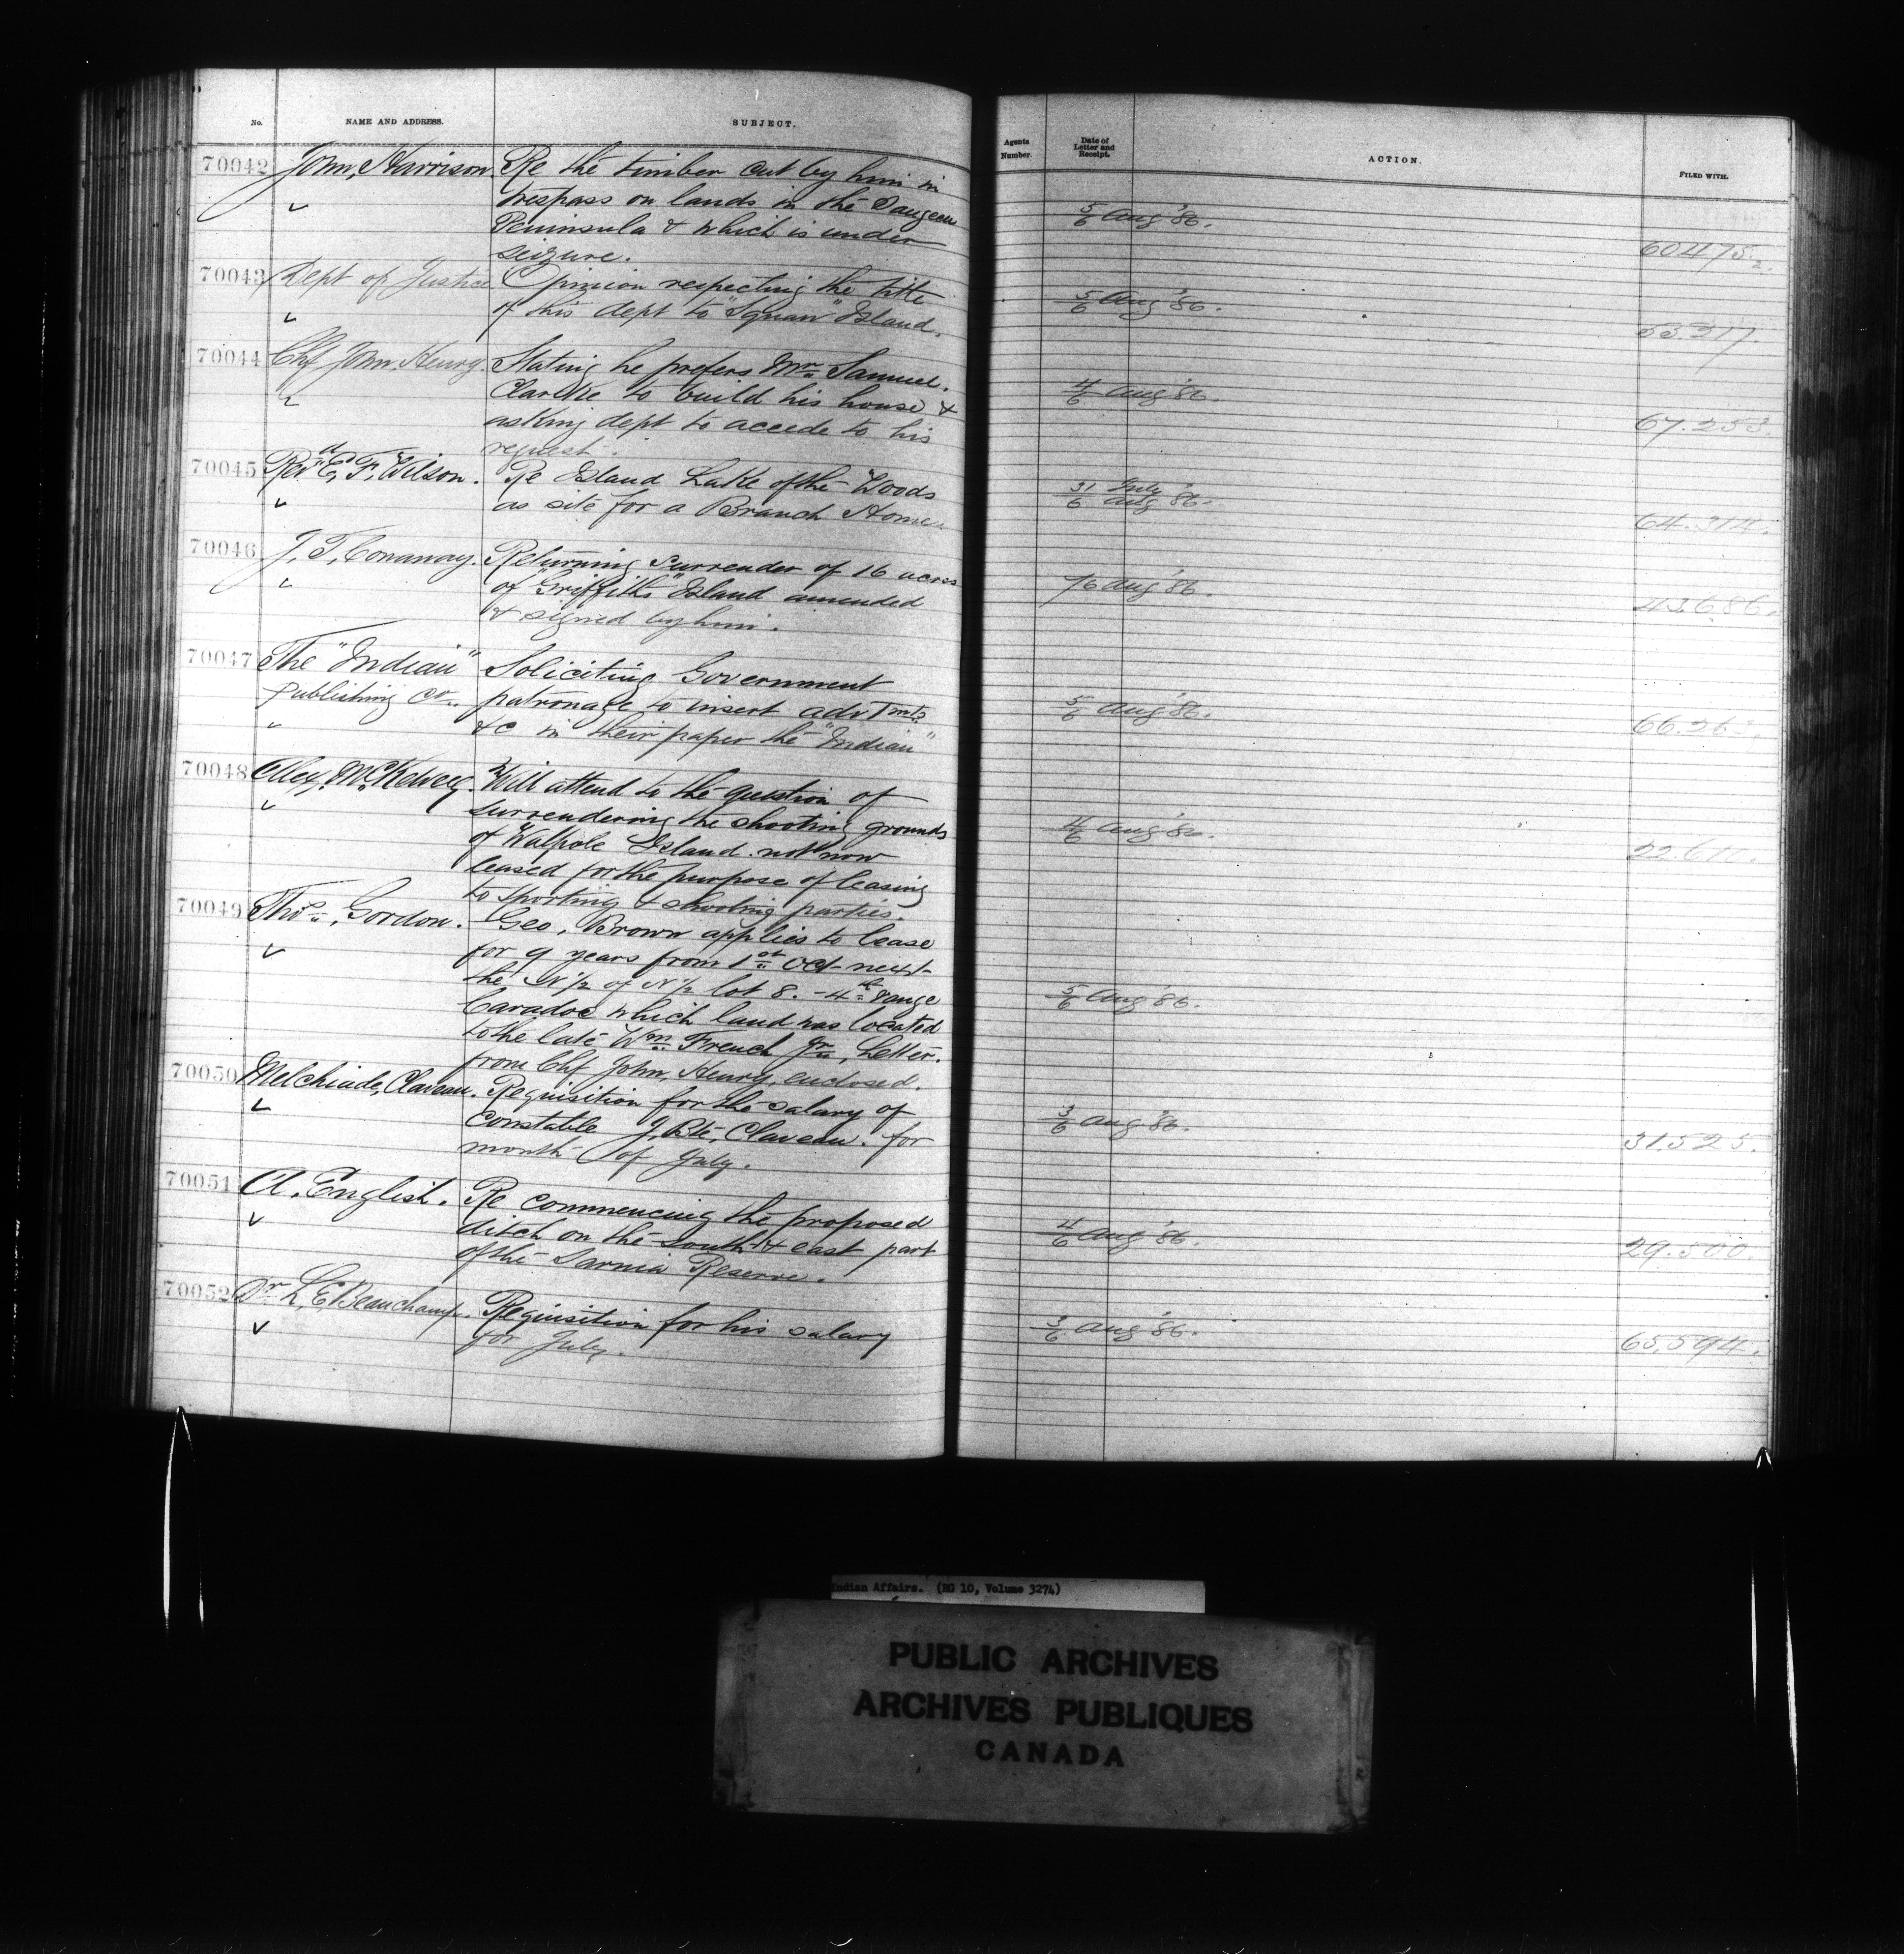 No. NAME AND ADDRESS. SUBJECT.
70042 John Harrison Re the timber cut by him in
trespass on lands in the Saugeen
Peninsula & which is under
seizure.
70043 Dept of Justice Opinion respecting the title
of his dept to "Squaw" Island.
70044 Chf John Henry. Stating he prefers Mr Samuel
Clarke to build his house &
asking dept to accede to his
request.
70045 Revd E. F. Wilson. Re Island Lake of the Woods
as site for a Branch Home
70046 J. T. Conaway. Returning surrender of 16 acres
of "Griffiths" Island amended
& signed by him.
70047 The "Indian" Soliciting Government
Publishing Co. patronage to insert advtmts
&c in their paper the "Indian"
70048 Alex. McKelvey. Will attend to the question of
surrendering the shooting grounds
of Walpole Island not now
leased for the purpose of leasing
to sporting & shooting parties.
70049 Thos Gordon. Geo. Brown applies to lease
for 9 years from 1st Oct next
the N ½ of N ½ lot 8. - 4th range
Caradoc which land was located
to the late Wm French Jr. Letter.
from Chf John Henry enclosed.
70050 Melchiade Claveau. Requisition for the salary of
Constable J. Bte, Claveau. for
month of July.
70051 A. English. Re commencing the proposed
ditch on the south & east part
of the Sarnia Reserve.
70052 Dr L. E. Beauchamp. Requisition for his salary
for July.
Agents Number. Date of Letter and Receipt. ACTION. FILED WITH.
5/6 Aug '86.
60475.2.
5/6 Aug '86.
55.217.
4/6 Aug '86.
67.253.
31/6 July Aug '86.
64.314.
/6 Aug '86.
43.686.
5/6 Aug '86.
66.263.
4/6 Aug '86.
22.610.
5/6 Aug '86.
3/6 Aug '86.
31.525.
4/6 Aug '86.
29.500.
3/6 Aug '86.
65.594.
Indian Affairs. (RG 10, Volume 3274)
PUBLIC ARCHIVES
ARCHIVES PUBLIQUES
CANADA